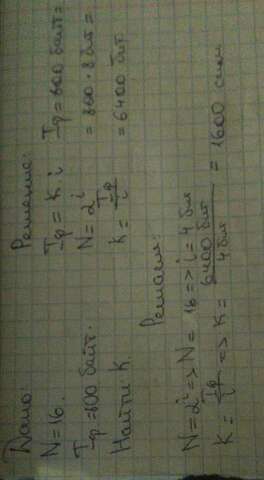 Дано:
N = 16.
Iф = 800 байт.
Найти K.
Решение:
Iф = K i
N = 2^i
K = Iф / i
Iф = 800 байт =
= 800 · 8 бит =
= 6400 бит
Решаем:
N = 2^i => N = 16 => i = 4 бит
K = Iф / i => K = 6400 бит / 4 бит = 1600 сим